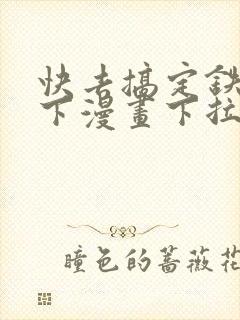 快去搞定鉄
下漫畫下拉
瞳色的蔷薇花